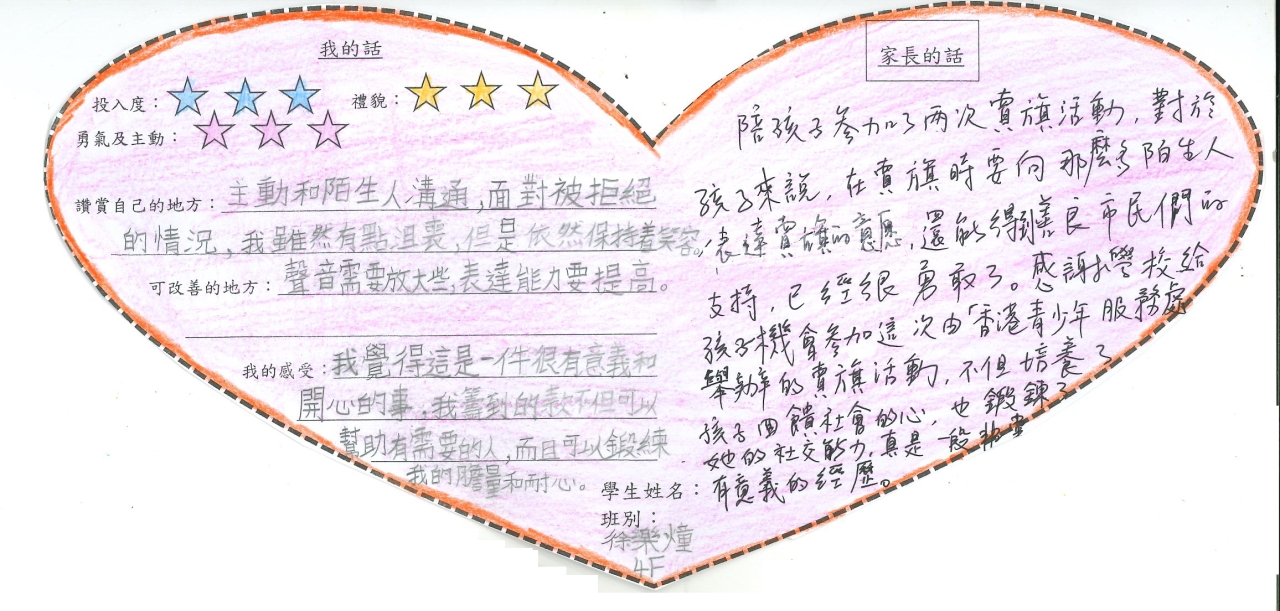 我的話
投入度： 禮貌：
勇氣及主動：
讚賞自己的地方：主動和陌生人溝通，面對被拒絕
的情況，我雖然有點沮喪，但是依然保持着笑容。
可改善的地方：聲音需要放大些，表達能力要提高。
我的感受：我覺得這是一件很有意義和
開心的事，我籌到的款不但可以
幫助有需要的人，而且可以鍛練
我的膽量和耐心。
家長的話
陪孩子參加了两次賣旗活動，對於
孩子來說，在賣旗時要向那麼多陌生人
表達賣旗的意愿，還能得到善良市民們的
支持，已經很勇敢了。感謝學校給
孩子機會參加這次由「香港青少年服務處
舉辦的賣旗活動，不但培養了
孩子回饋社會的心，也鍛鍊了
她的社交能力，真是一段
有意義的經歷。
學生姓名：
班別：
徐樂
4F